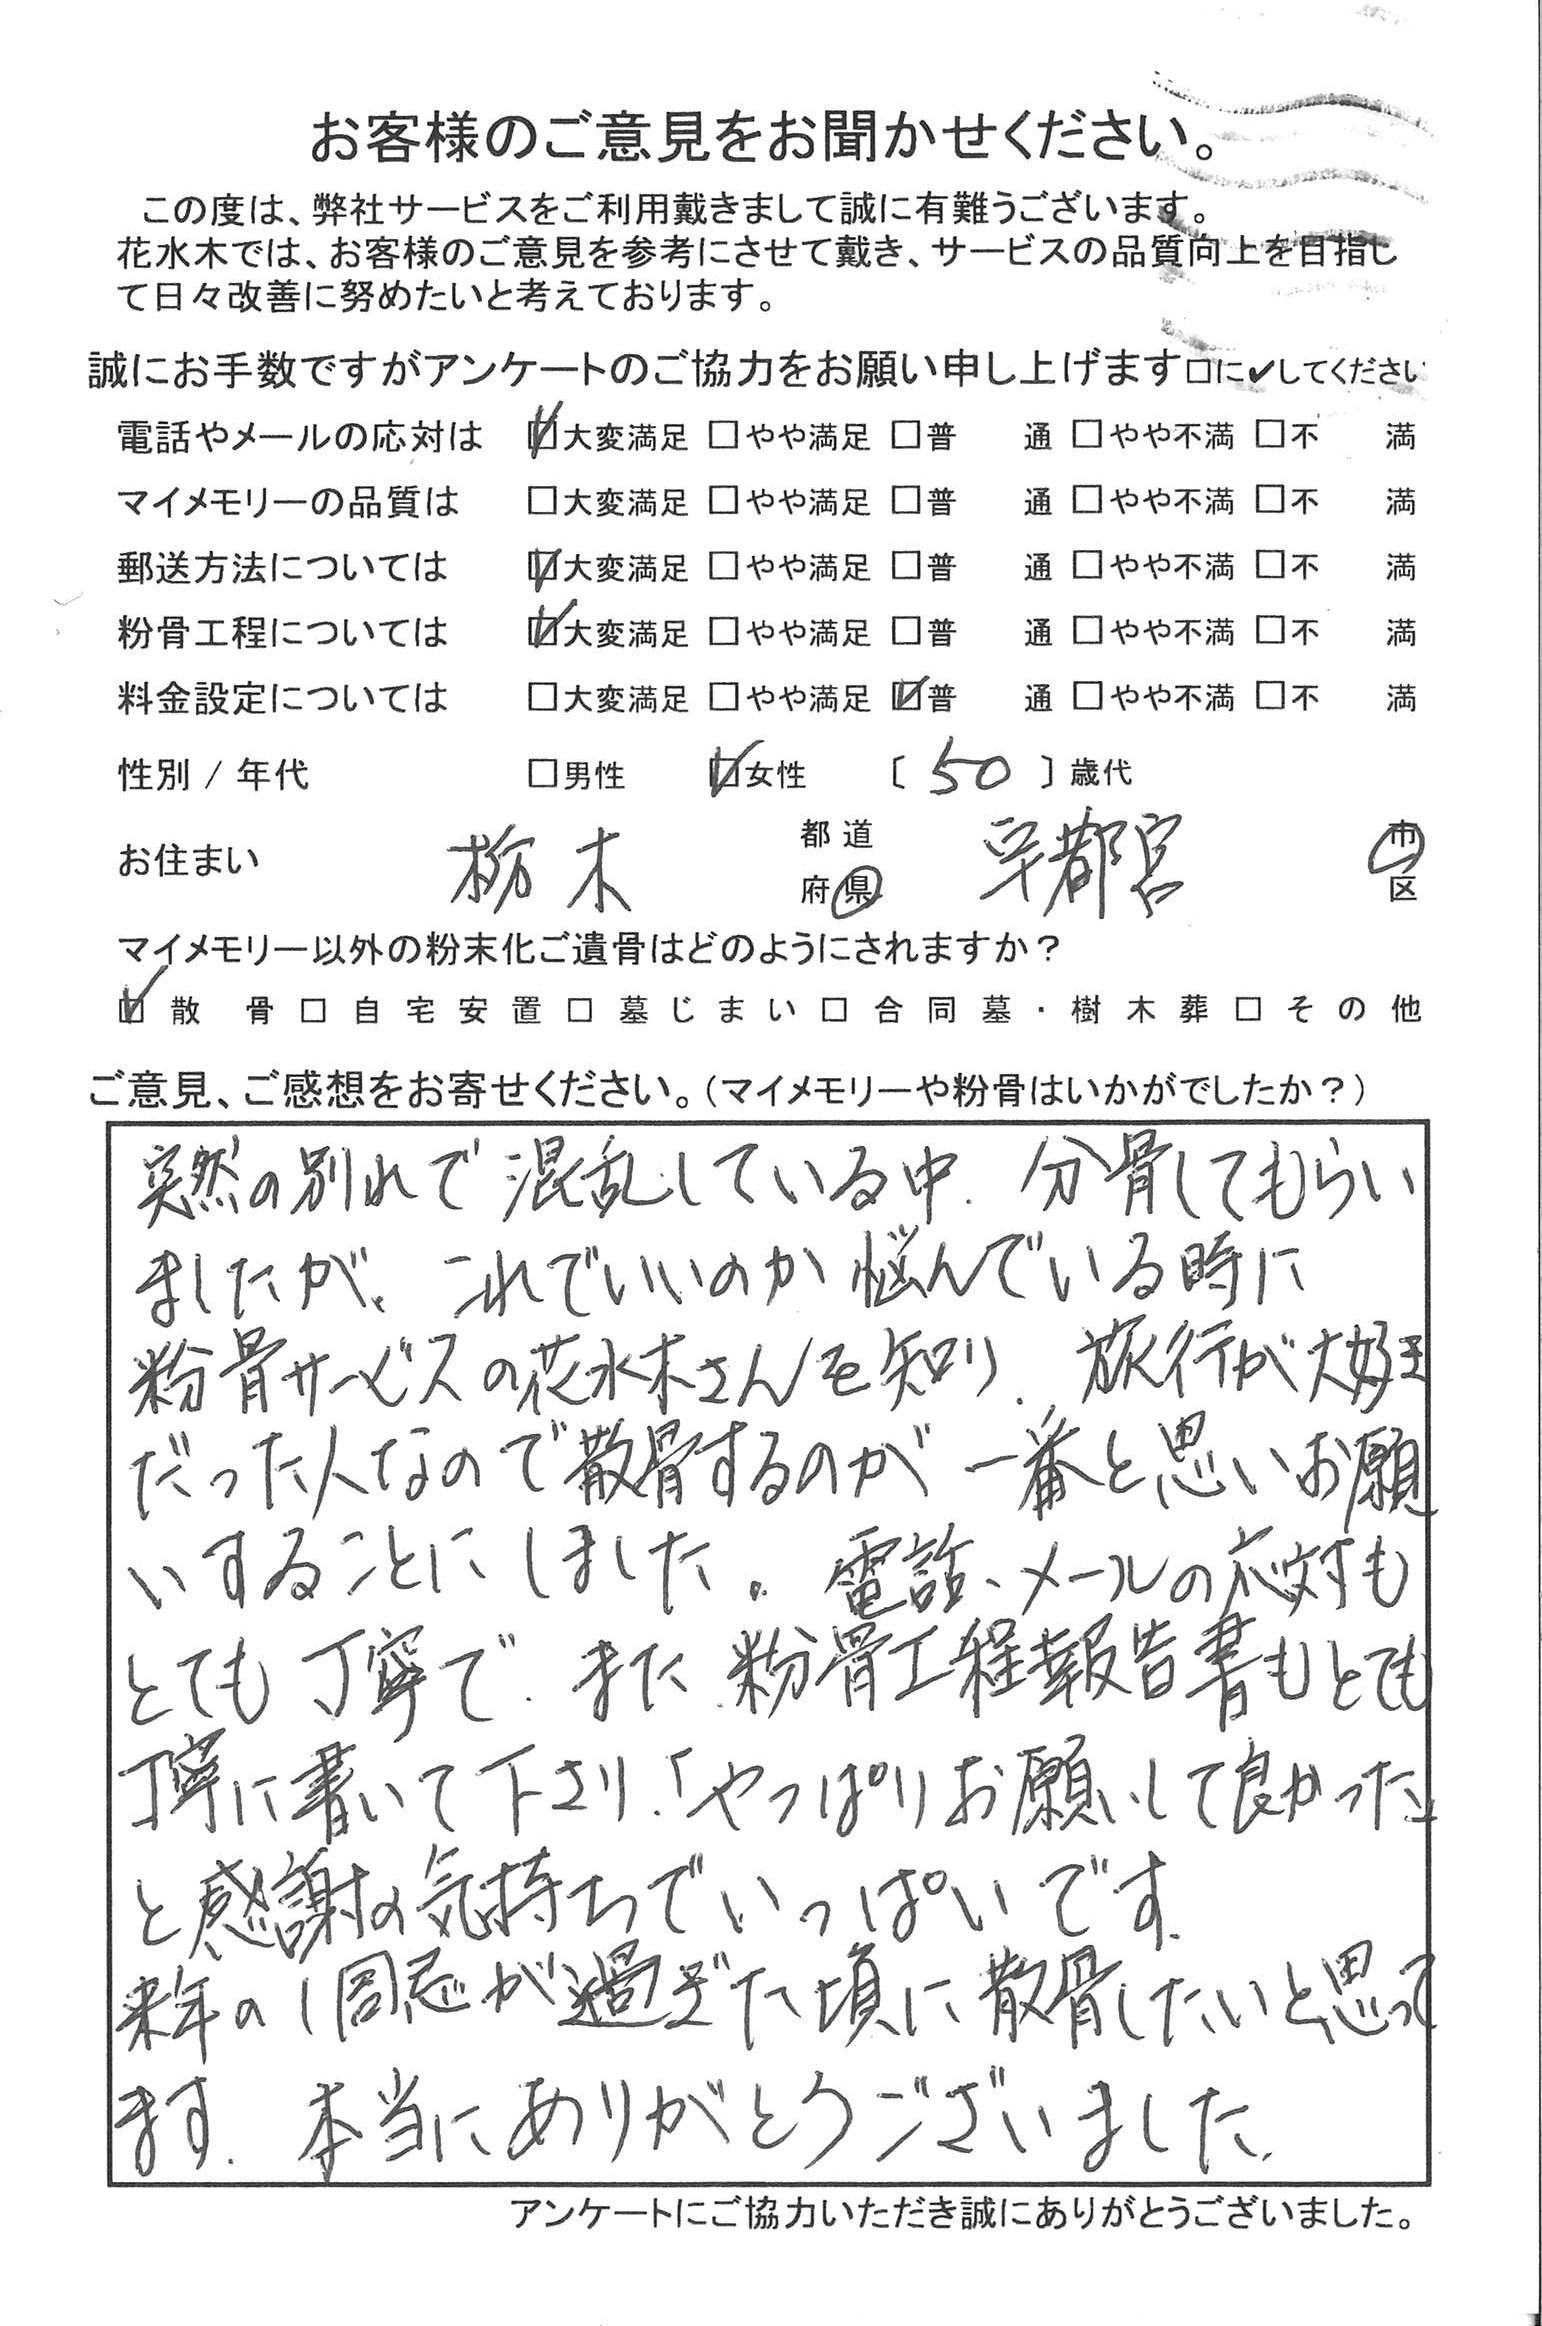 お客様のご意見をお聞かせください。
この度は、弊社サービスをご利用戴きまして誠に有難うございます。
花水木では、お客様のご意見を参考にさせて戴き、サービスの品質向上を目指し
て日々改善に努めたいと考えております。
誠にお手数ですがアンケートのご協力をお願い申し上げます□に✔してください
電話やメールの応対は ☑大変満足 □やや満足 □普 通 □やや不満 □不 満
マイメモリーの品質は □大変満足 □やや満足 □普 通 □やや不満 □不 満
郵送方法については ☑大変満足 □やや満足 □普 通 □やや不満 □不 満
粉骨工程については ☑大変満足 □やや満足 □普 通 □やや不満 □不 満
料金設定については □大変満足 □やや満足 ☑普 通 □やや不満 □不 満
性別 / 年代 □男性 ☑女性 〔 50 〕歳代
お住まい 栃木 都道府県 宇都宮 市区
マイメモリー以外の粉末化ご遺骨はどのようにされますか？
☑散 骨 □自宅安置 □墓じまい □合同墓・樹木葬 □その他
ご意見、ご感想をお寄せください。（マイメモリーや粉骨はいかがでしたか？）
突然の別れで混乱している中、分骨してもらい
ましたが、これでいいのか悩んでいる時に
粉骨サービスの花水木さんを知り、旅行が大好き
だった人なので散骨するのが一番と思いお願
いすることにしました。電話、メールの応対も
とても丁寧で、また、粉骨工程報告書もとても
丁寧に書いて下さり、「やっぱりお願いして良かった」
と感謝の気持ちでいっぱいです。
来年の1周忌が過ぎた頃に散骨したいと思って
ます。本当にありがとうございました。
アンケートにご協力いただき誠にありがとうございました。